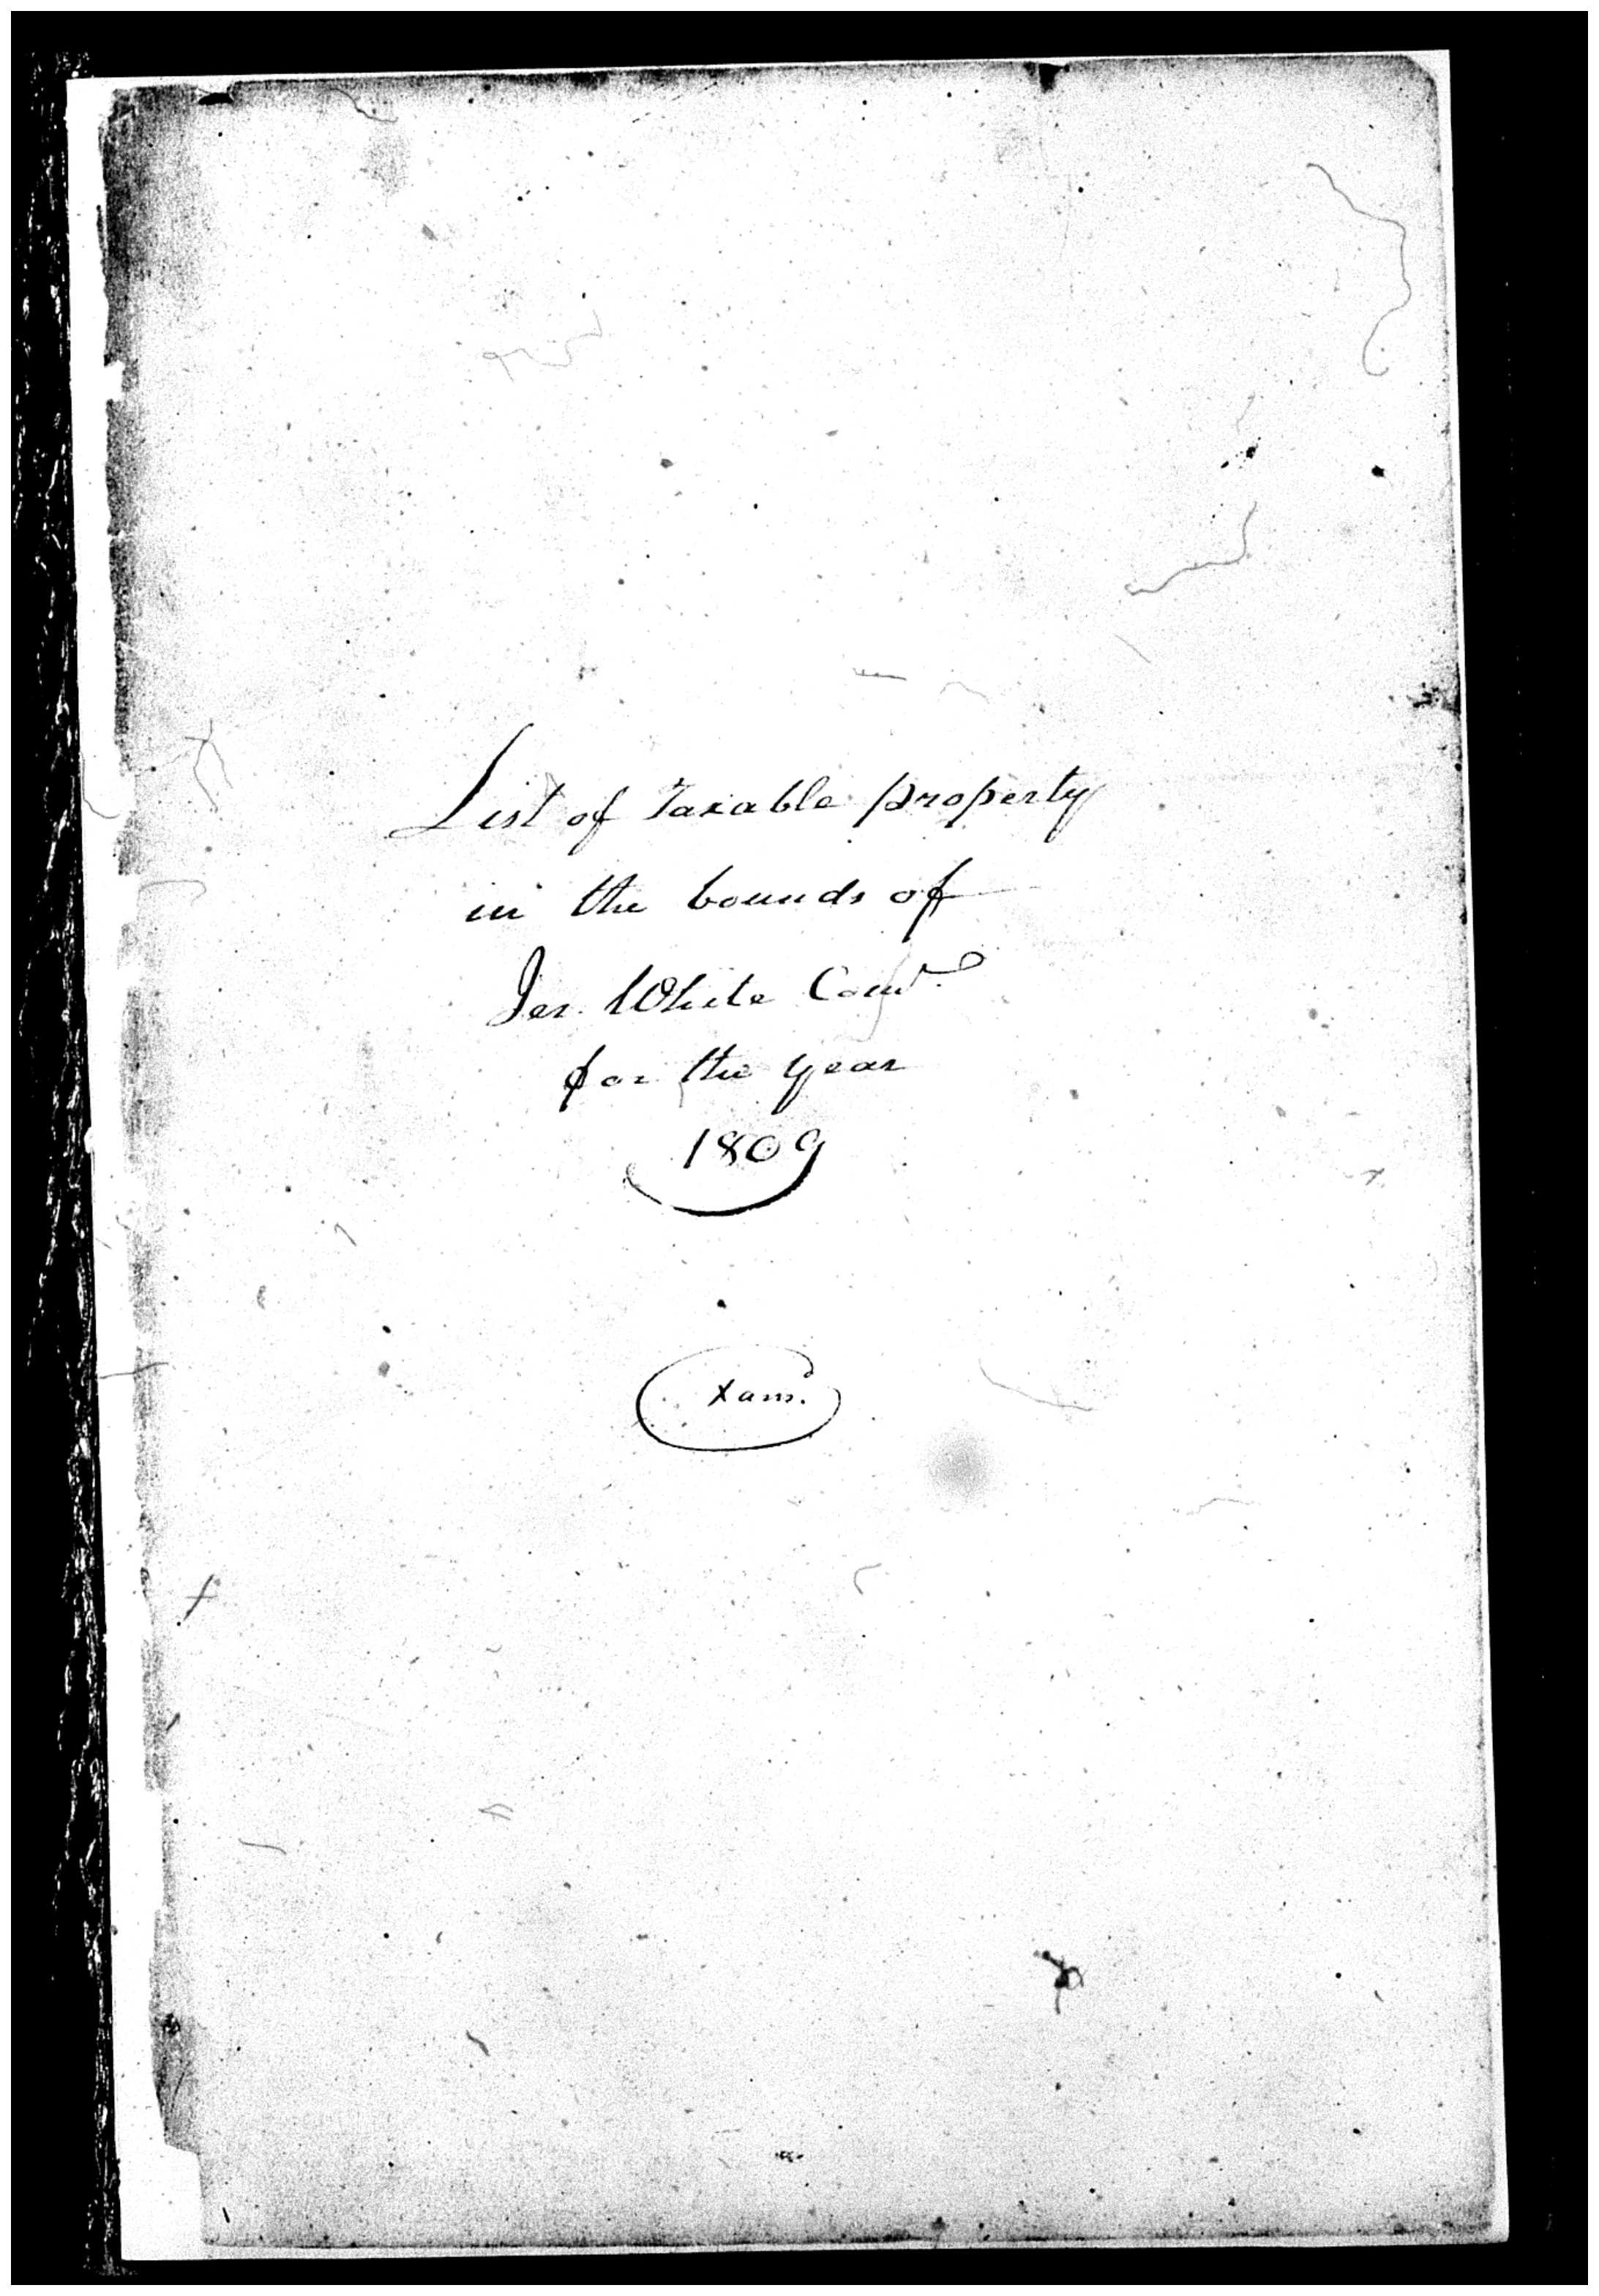 List of Taxable property
in the bounds of
Jer. White Comr.
for the year
1809
Xamd.